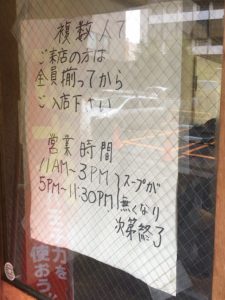 複数人で
ご来店の方は
全員揃ってから
ご入店下さい
営業時間
11AM～3PM
5PM～11:30PM
スープが
無くなり
次第終了
力を
使おう!!